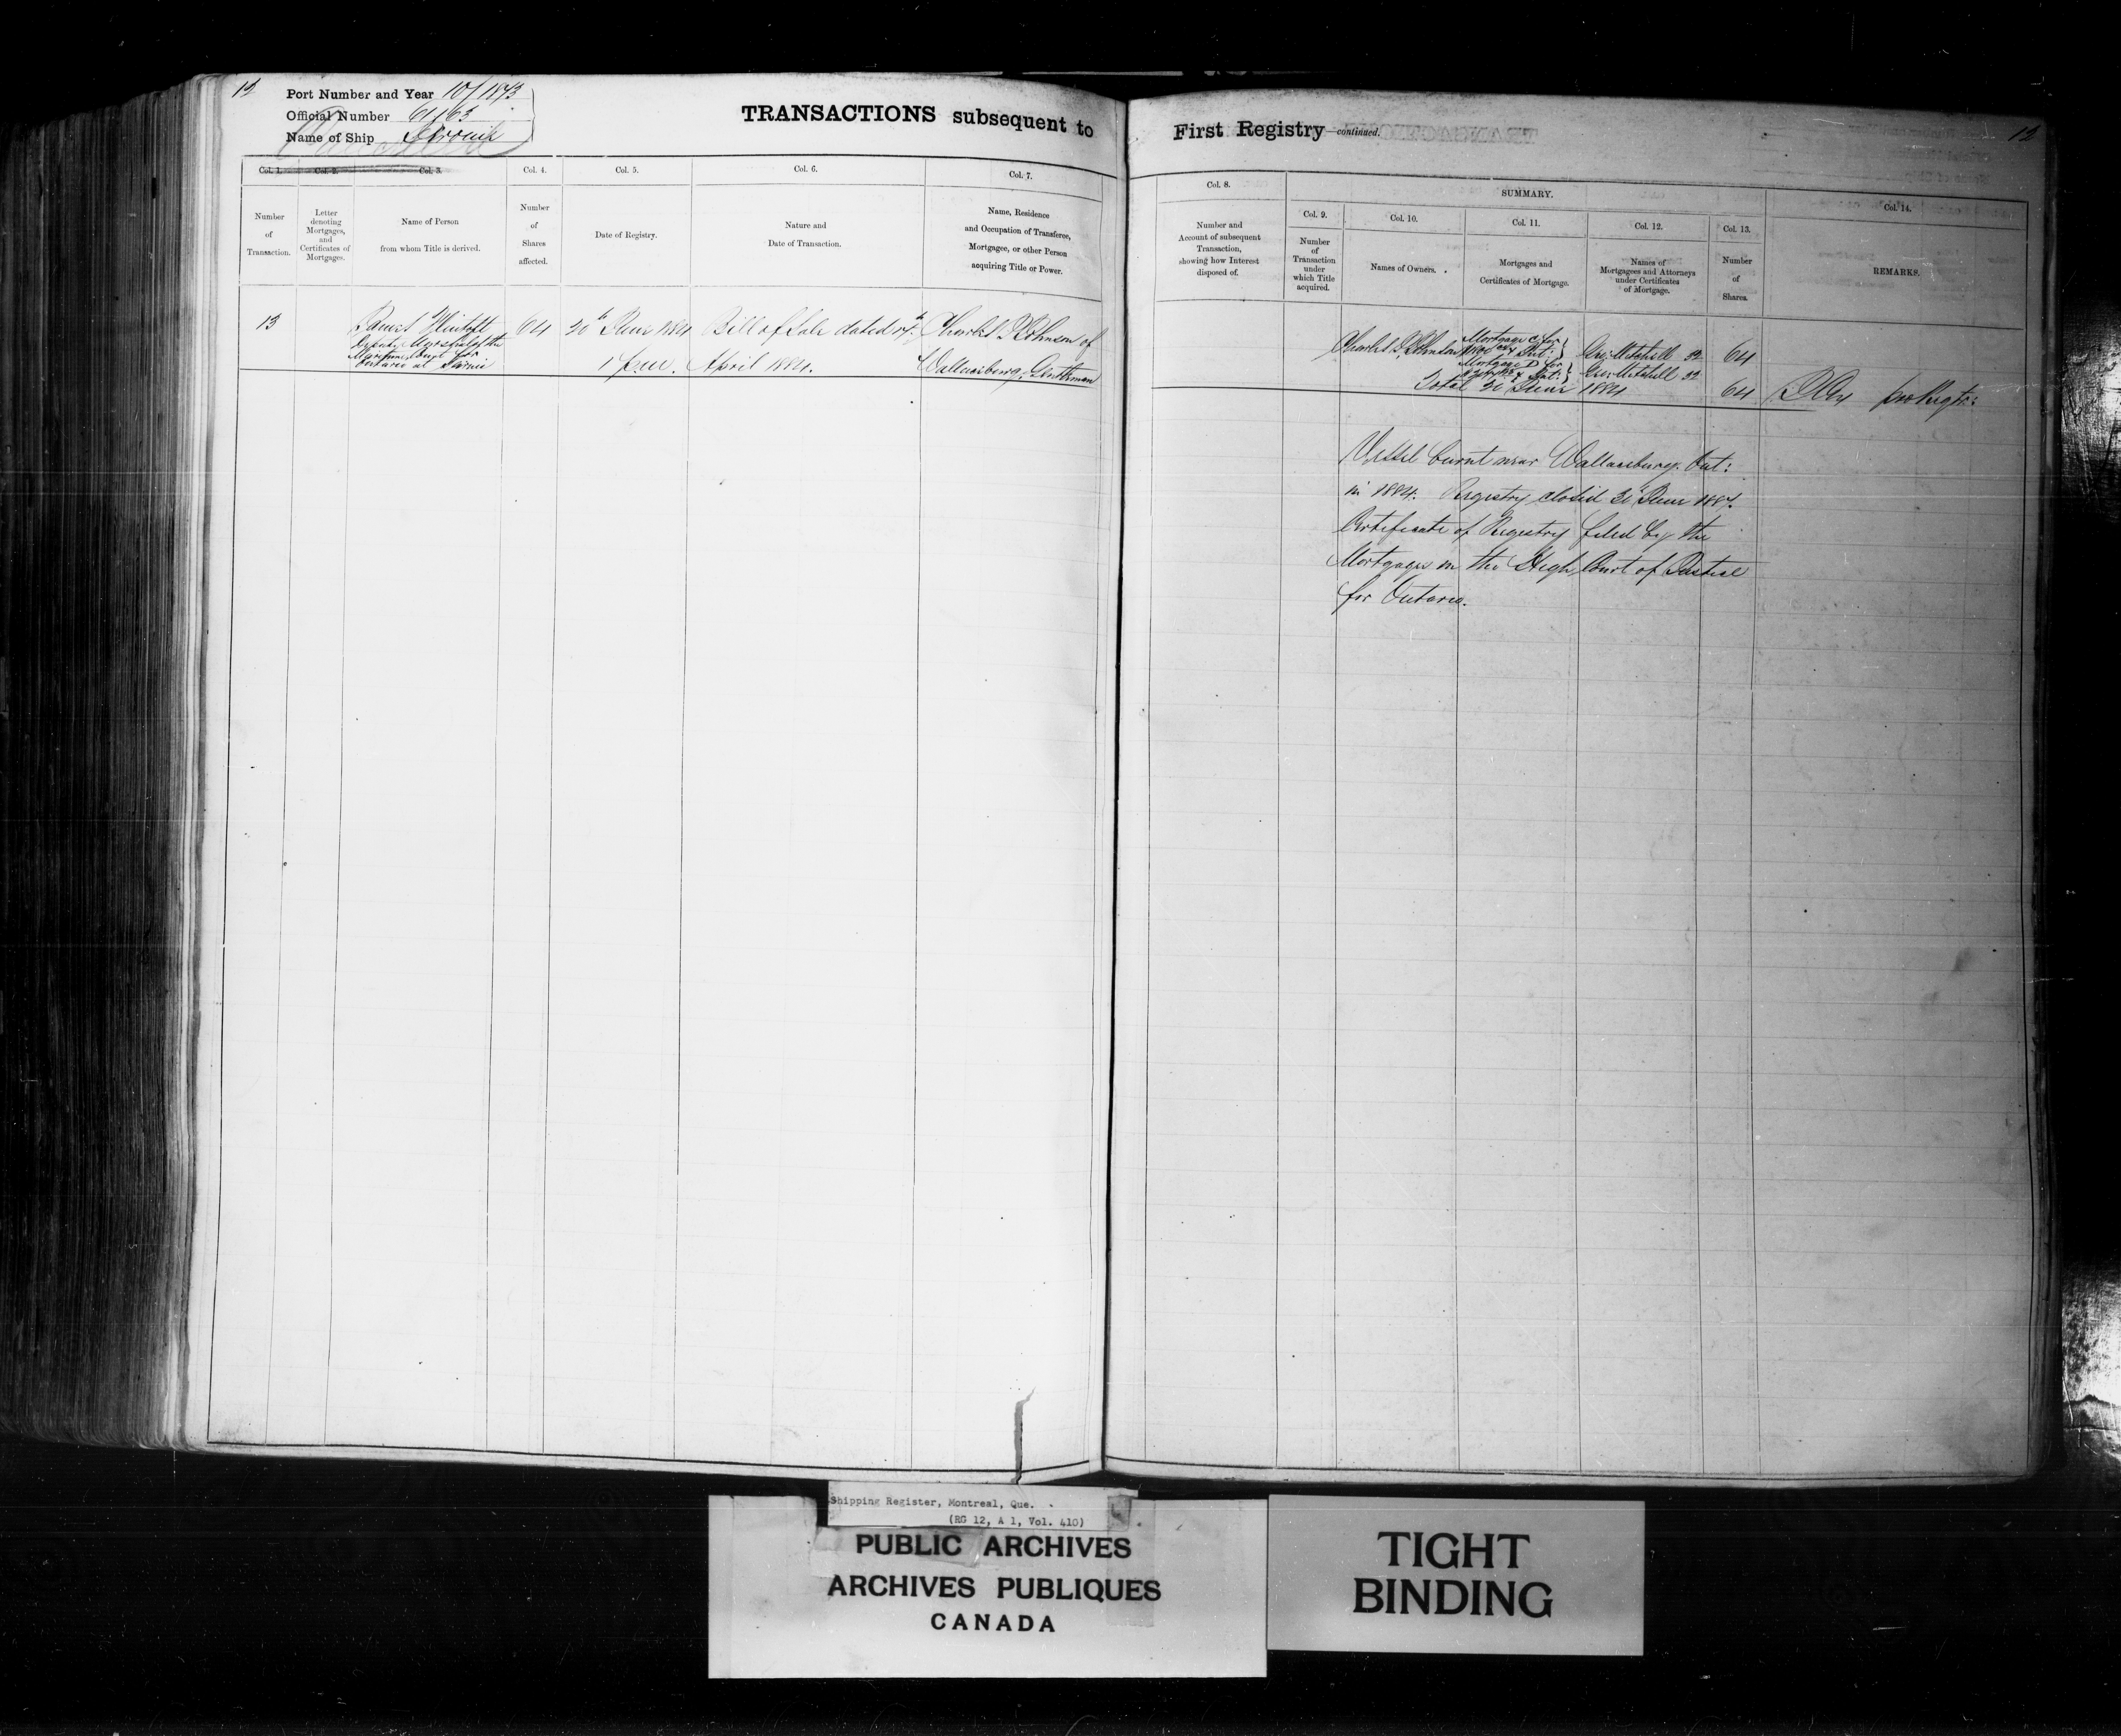 12
Port Number and Year 10/1873
Official Number 61163
Name of Ship
TRANSACTIONS subsequent to
Col. 1.
Col. 2.
Col. 3.
Col. 4.
Col. 5.
Col. 6.
Col. 7.
Number
of
Transaction.
Letter
denoting
Mortgages,
and
Certificates of
Mortgages.
Name of Person
from whom Title is derived.
Number
of
Shares
affected.
Date of Registry.
Nature and
Date of Transaction.
Name, Residence
and Occupation of Transferee,
Mortgagee, or other Person
acquiring Title or Power.
13
James
Deputy Marshal of the
Maritime Court for
Ontario at Sarnia
64
30th June 1884
1 p.m.
Bill of Sale dated 17th
April 1884.
Charles Johnson of
Wallaceburg, Gentleman
First Registry—continued.
12
Col. 8.
SUMMARY.
Col. 14.
Col. 9.
Col. 10.
Col. 11.
Col. 12.
Col. 13.
Number and
Account of subsequent
Transaction,
showing how Interest
disposed of.
Number
of
Transaction
under
which Title
acquired.
Names of Owners.
Mortgages and
Certificates of Mortgage.
Names of
Mortgagees and Attorneys
under Certificates
of Mortgage.
Number
of
Shares.
REMARKS.
Charles Johnson
Mortgage C for
& Int:
Geo: Mitchell 32
64
Mortgage D for
& Int:
Geo: Mitchell 32
Total 30 June 1884
64
pro Regtr:
Vessel burnt near Wallaceburg. Ont:
in 1884. Registry closed 30 June 1887.
Certificate of Registry filed by the
Mortgagee in the High Court of Justice
for Ontario.
Shipping Register, Montreal, Que.
(RG 12, A 1, Vol. 410)
PUBLIC ARCHIVES
ARCHIVES PUBLIQUES
CANADA
TIGHT
BINDING